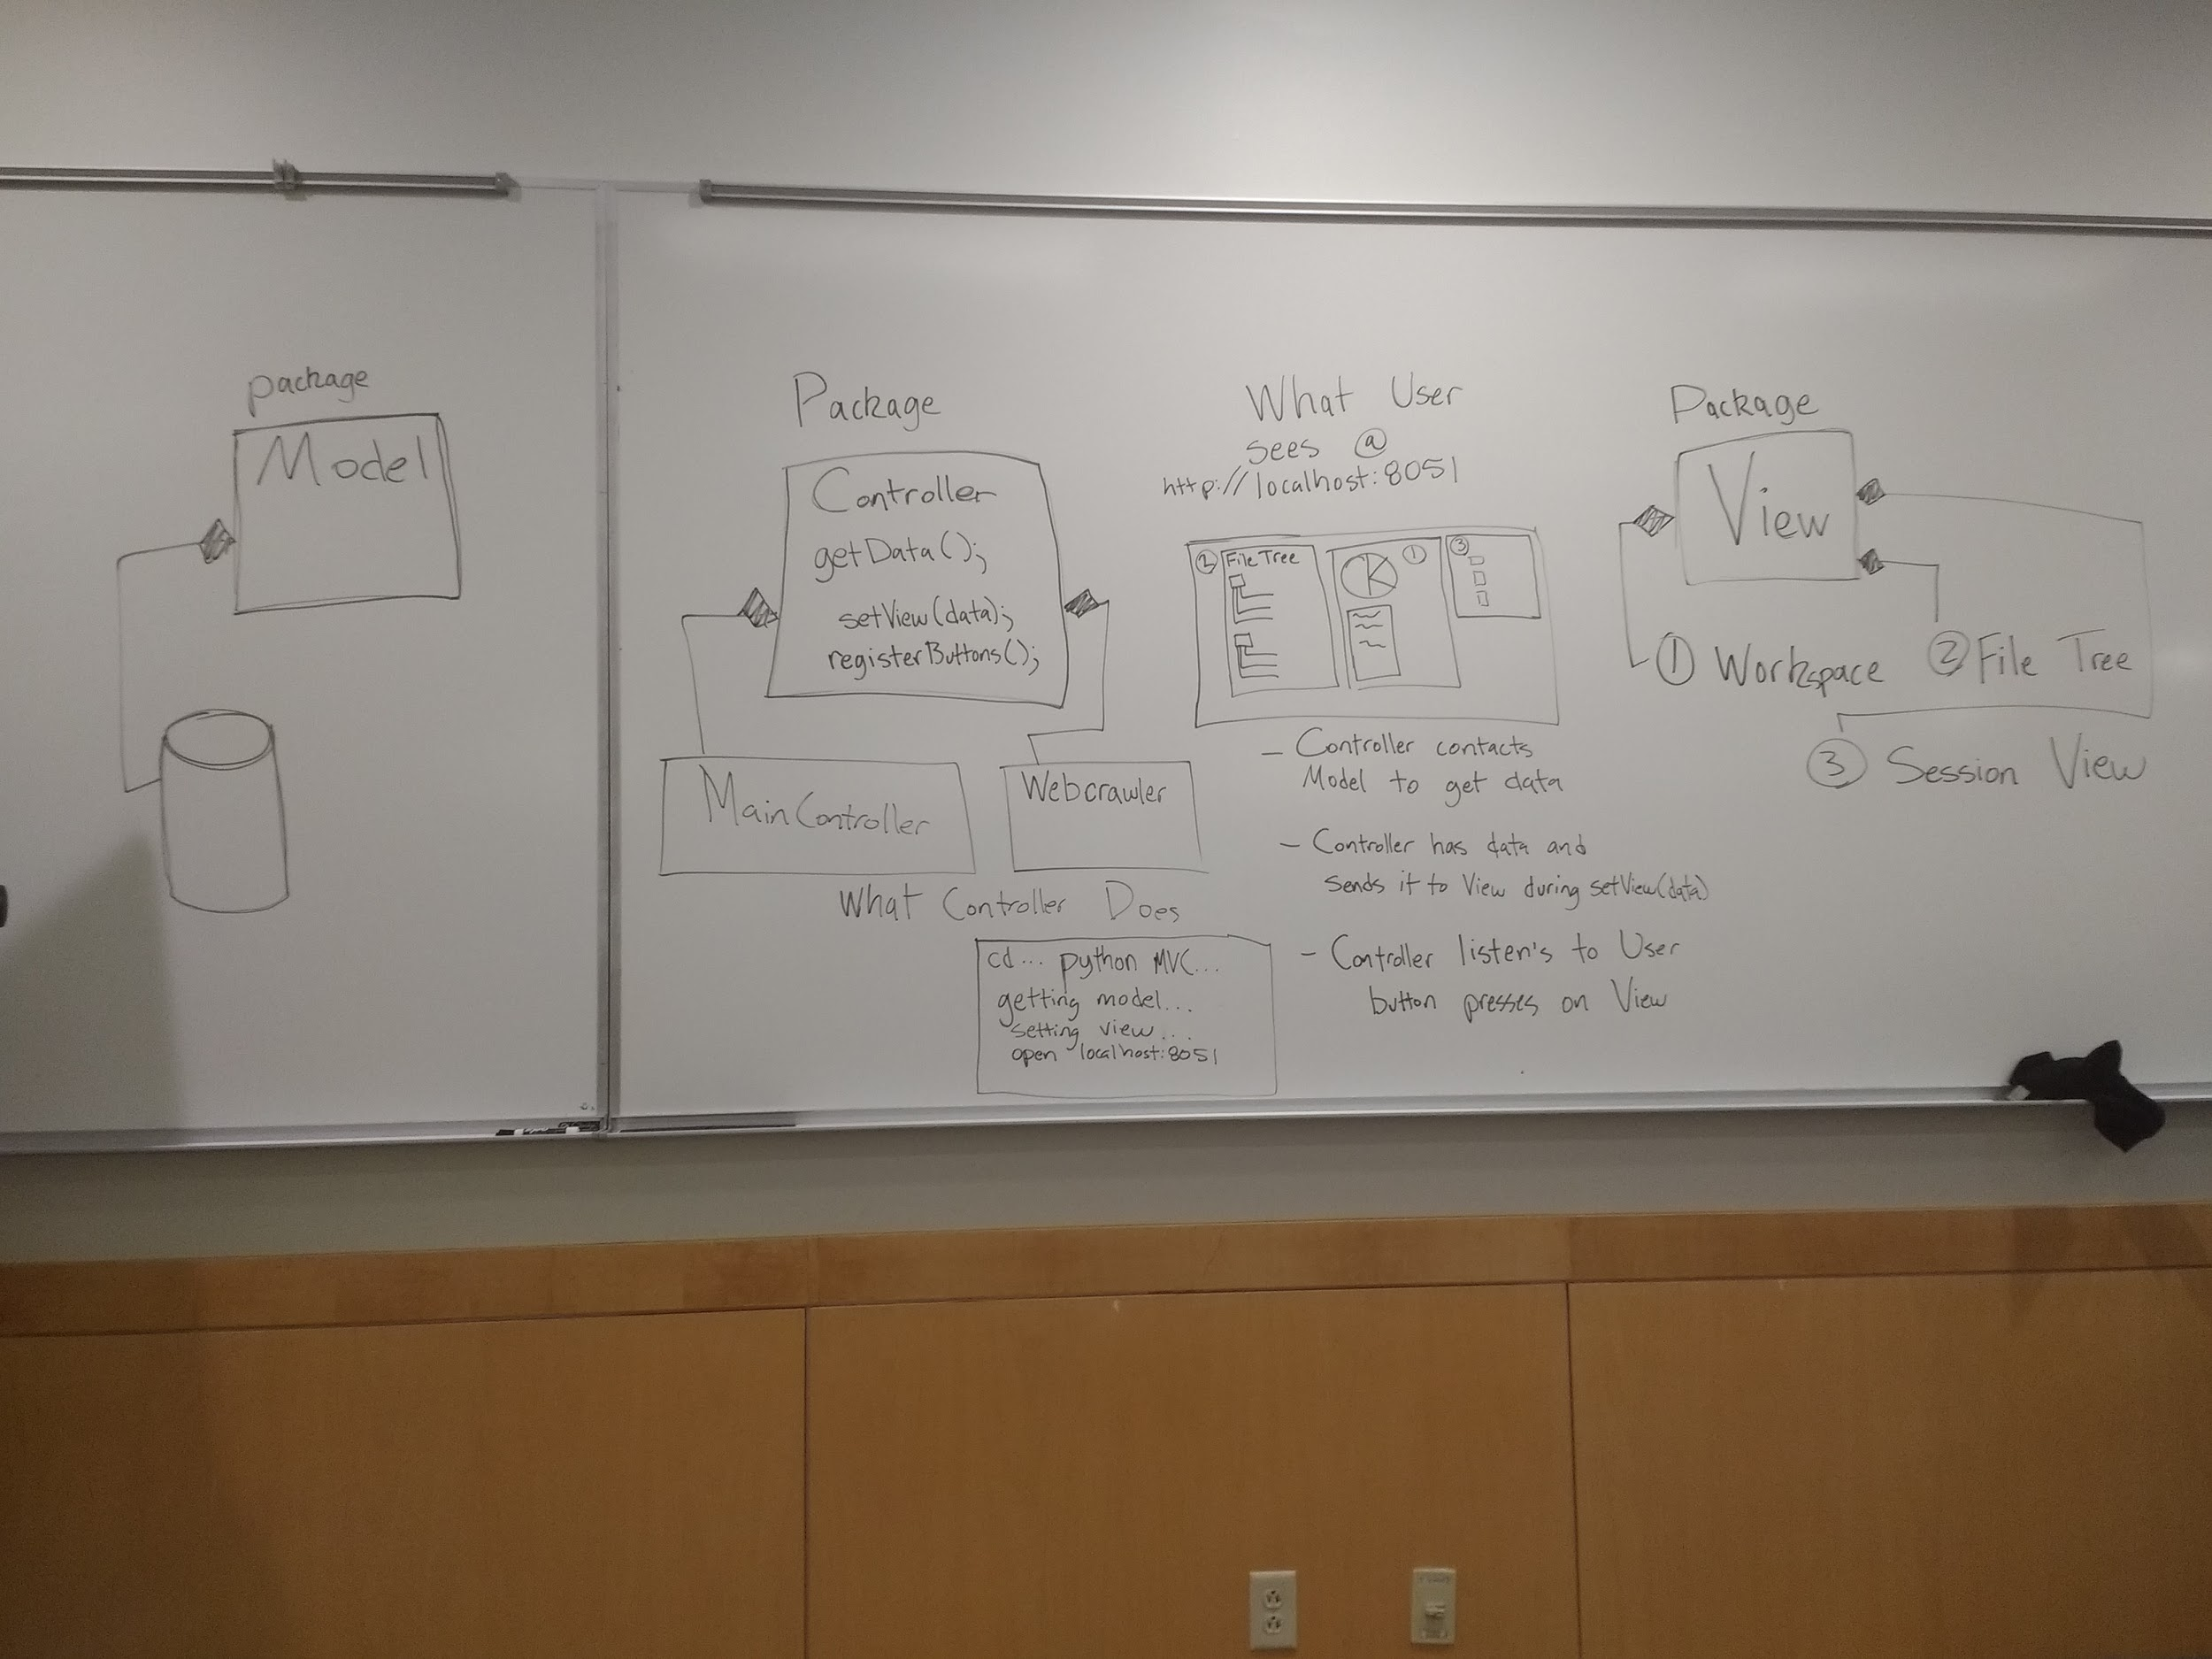 package
Model
Package
Controller
getData();
setView(data);
registerButtons();
MainController
Webcrawler
What Controller Does
cd... python MVC...
getting model...
setting view...
open localhost:8051
What User
sees @
http://localhost:8051
② File Tree
①
③
- Controller contacts
Model to get data
- Controller has data and
sends it to View during setView(data)
- Controller listen's to User
button presses on View
Package
View
① Workspace
② File Tree
③ Session View